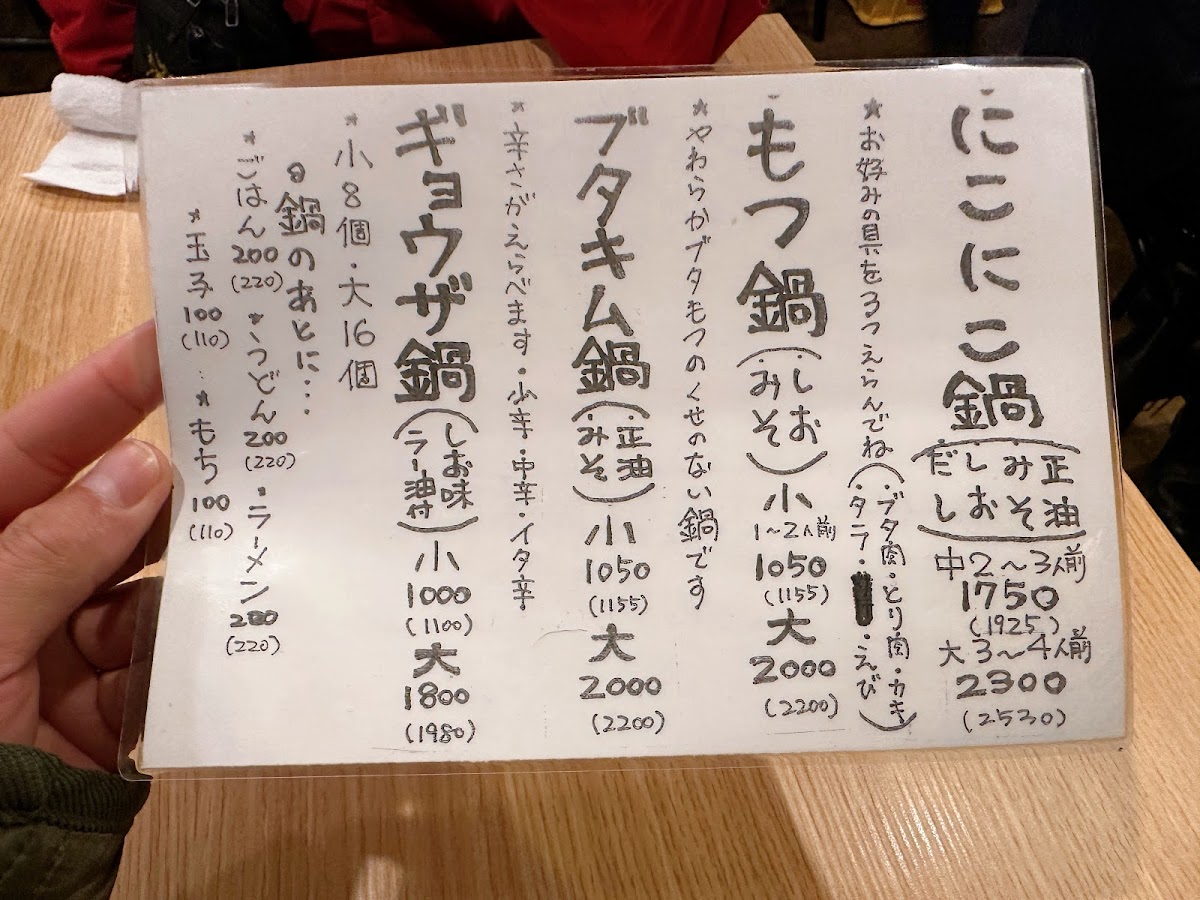 にこにこ鍋
正油
みそ
しお
だし
中2～3人前
1750
(1925)
大3～4人前
2300
(2530)
★お好みの具を3つえらんでね
(・ブタ肉・とり肉・カキ
・タラ・
・えび)
もつ鍋
(・しお
・みそ)
小
1～2人前
1050
(1155)
大
2000
(2200)
★やわらかブタもつのくせのない鍋です
ブタキム鍋
(・正油
・みそ)
小
1050
(1155)
大
2000
(2200)
*辛さがえらべます・少辛・中辛・イタ辛
ギョウザ鍋
(しお味
ラー油付)
小
1000
(1100)
大
1800
(1980)
*小8個・大16個
鍋のあとに・・・
*ごはん
200
(220)
*うどん
200
(220)
・ラーメン
200
(220)
*玉子
100
(110)
*もち
100
(110)